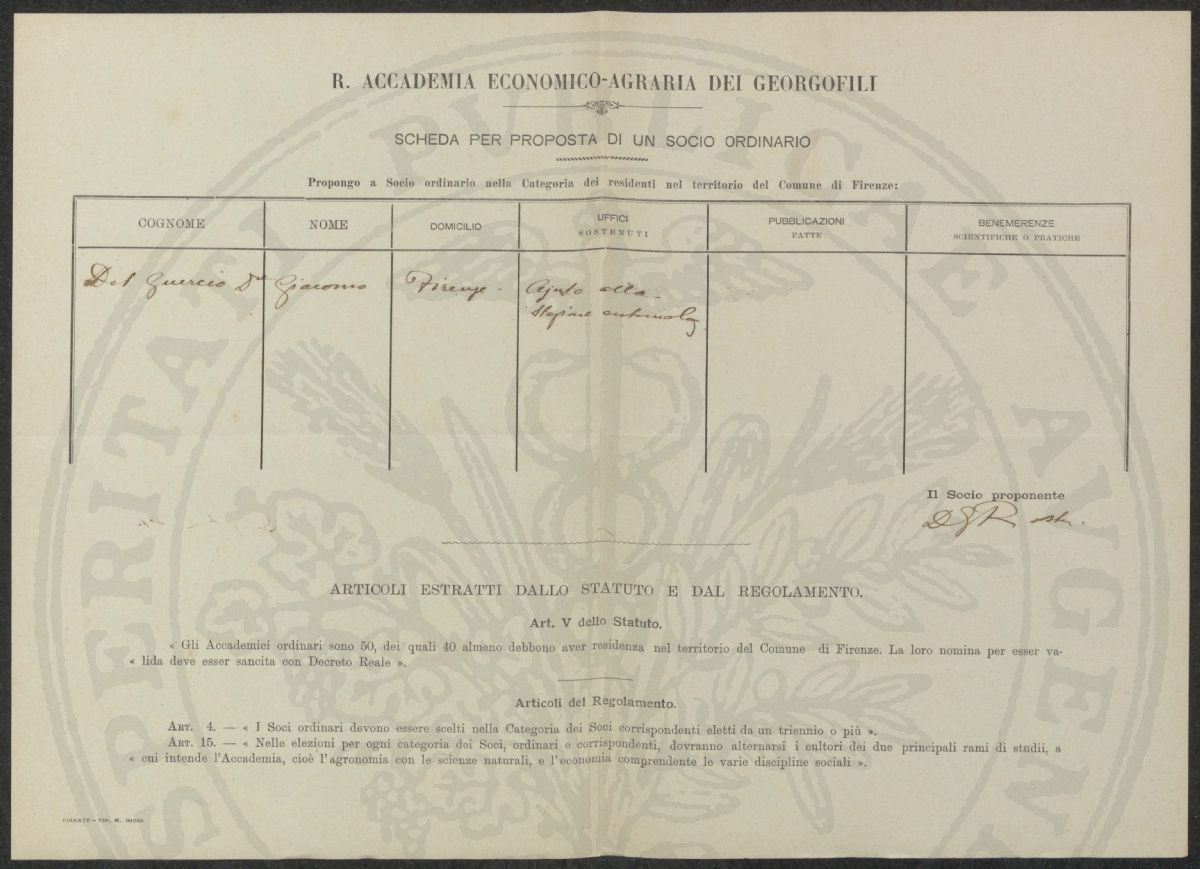 R. ACCADEMIA ECONOMICO-AGRARIA DEI GEORGOFILI
SCHEDA PER PROPOSTA DI UN SOCIO ORDINARIO
Propongo a Socio ordinario nella Categoria dei residenti nel territorio del Comune di Firenze:
COGNOME NOME DOMICILIO UFFICI SOSTENUTI PUBBLICAZIONI FATTE BENEMERENZE SCIENTIFICHE O PRATICHE
Del Guercio Dr Giacomo Firenze. Ajuto alla
Stazione entomolog.
Il Socio proponente
ARTICOLI ESTRATTI DALLO STATUTO E DAL REGOLAMENTO.
Art. V dello Statuto.
« Gli Accademici ordinari sono 50, dei quali 40 almeno debbono aver residenza nel territorio del Comune di Firenze. La loro nomina per esser va-
« lida deve esser sancita con Decreto Reale ».
Articoli del Regolamento.
ART. 4. — « I Soci ordinari devono essere scelti nella Categoria dei Soci corrispondenti eletti da un triennio o più ».
ART. 15. — « Nelle elezioni per ogni categoria dei Soci, ordinari e corrispondenti, dovranno alternarsi i cultori dei due principali rami di studii, a
« cui intende l'Accademia, cioè l'agronomia con le scienze naturali, e l'economia comprendente le varie discipline sociali ».
FIRENZE — TIP. M. RICCI
PROSPERITATI PUBLICAE AVGEN